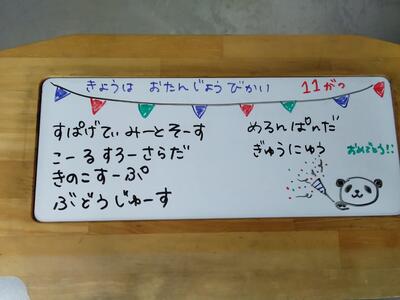 きょうは おたんじょうびかい 11がつ
すぱげてぃみーとそーす
こーるすろーさらだ
きのこすーぷ
ぶどうじゅーす
めろんぱんだ
ぎゅうにゅう
おめでとう!!